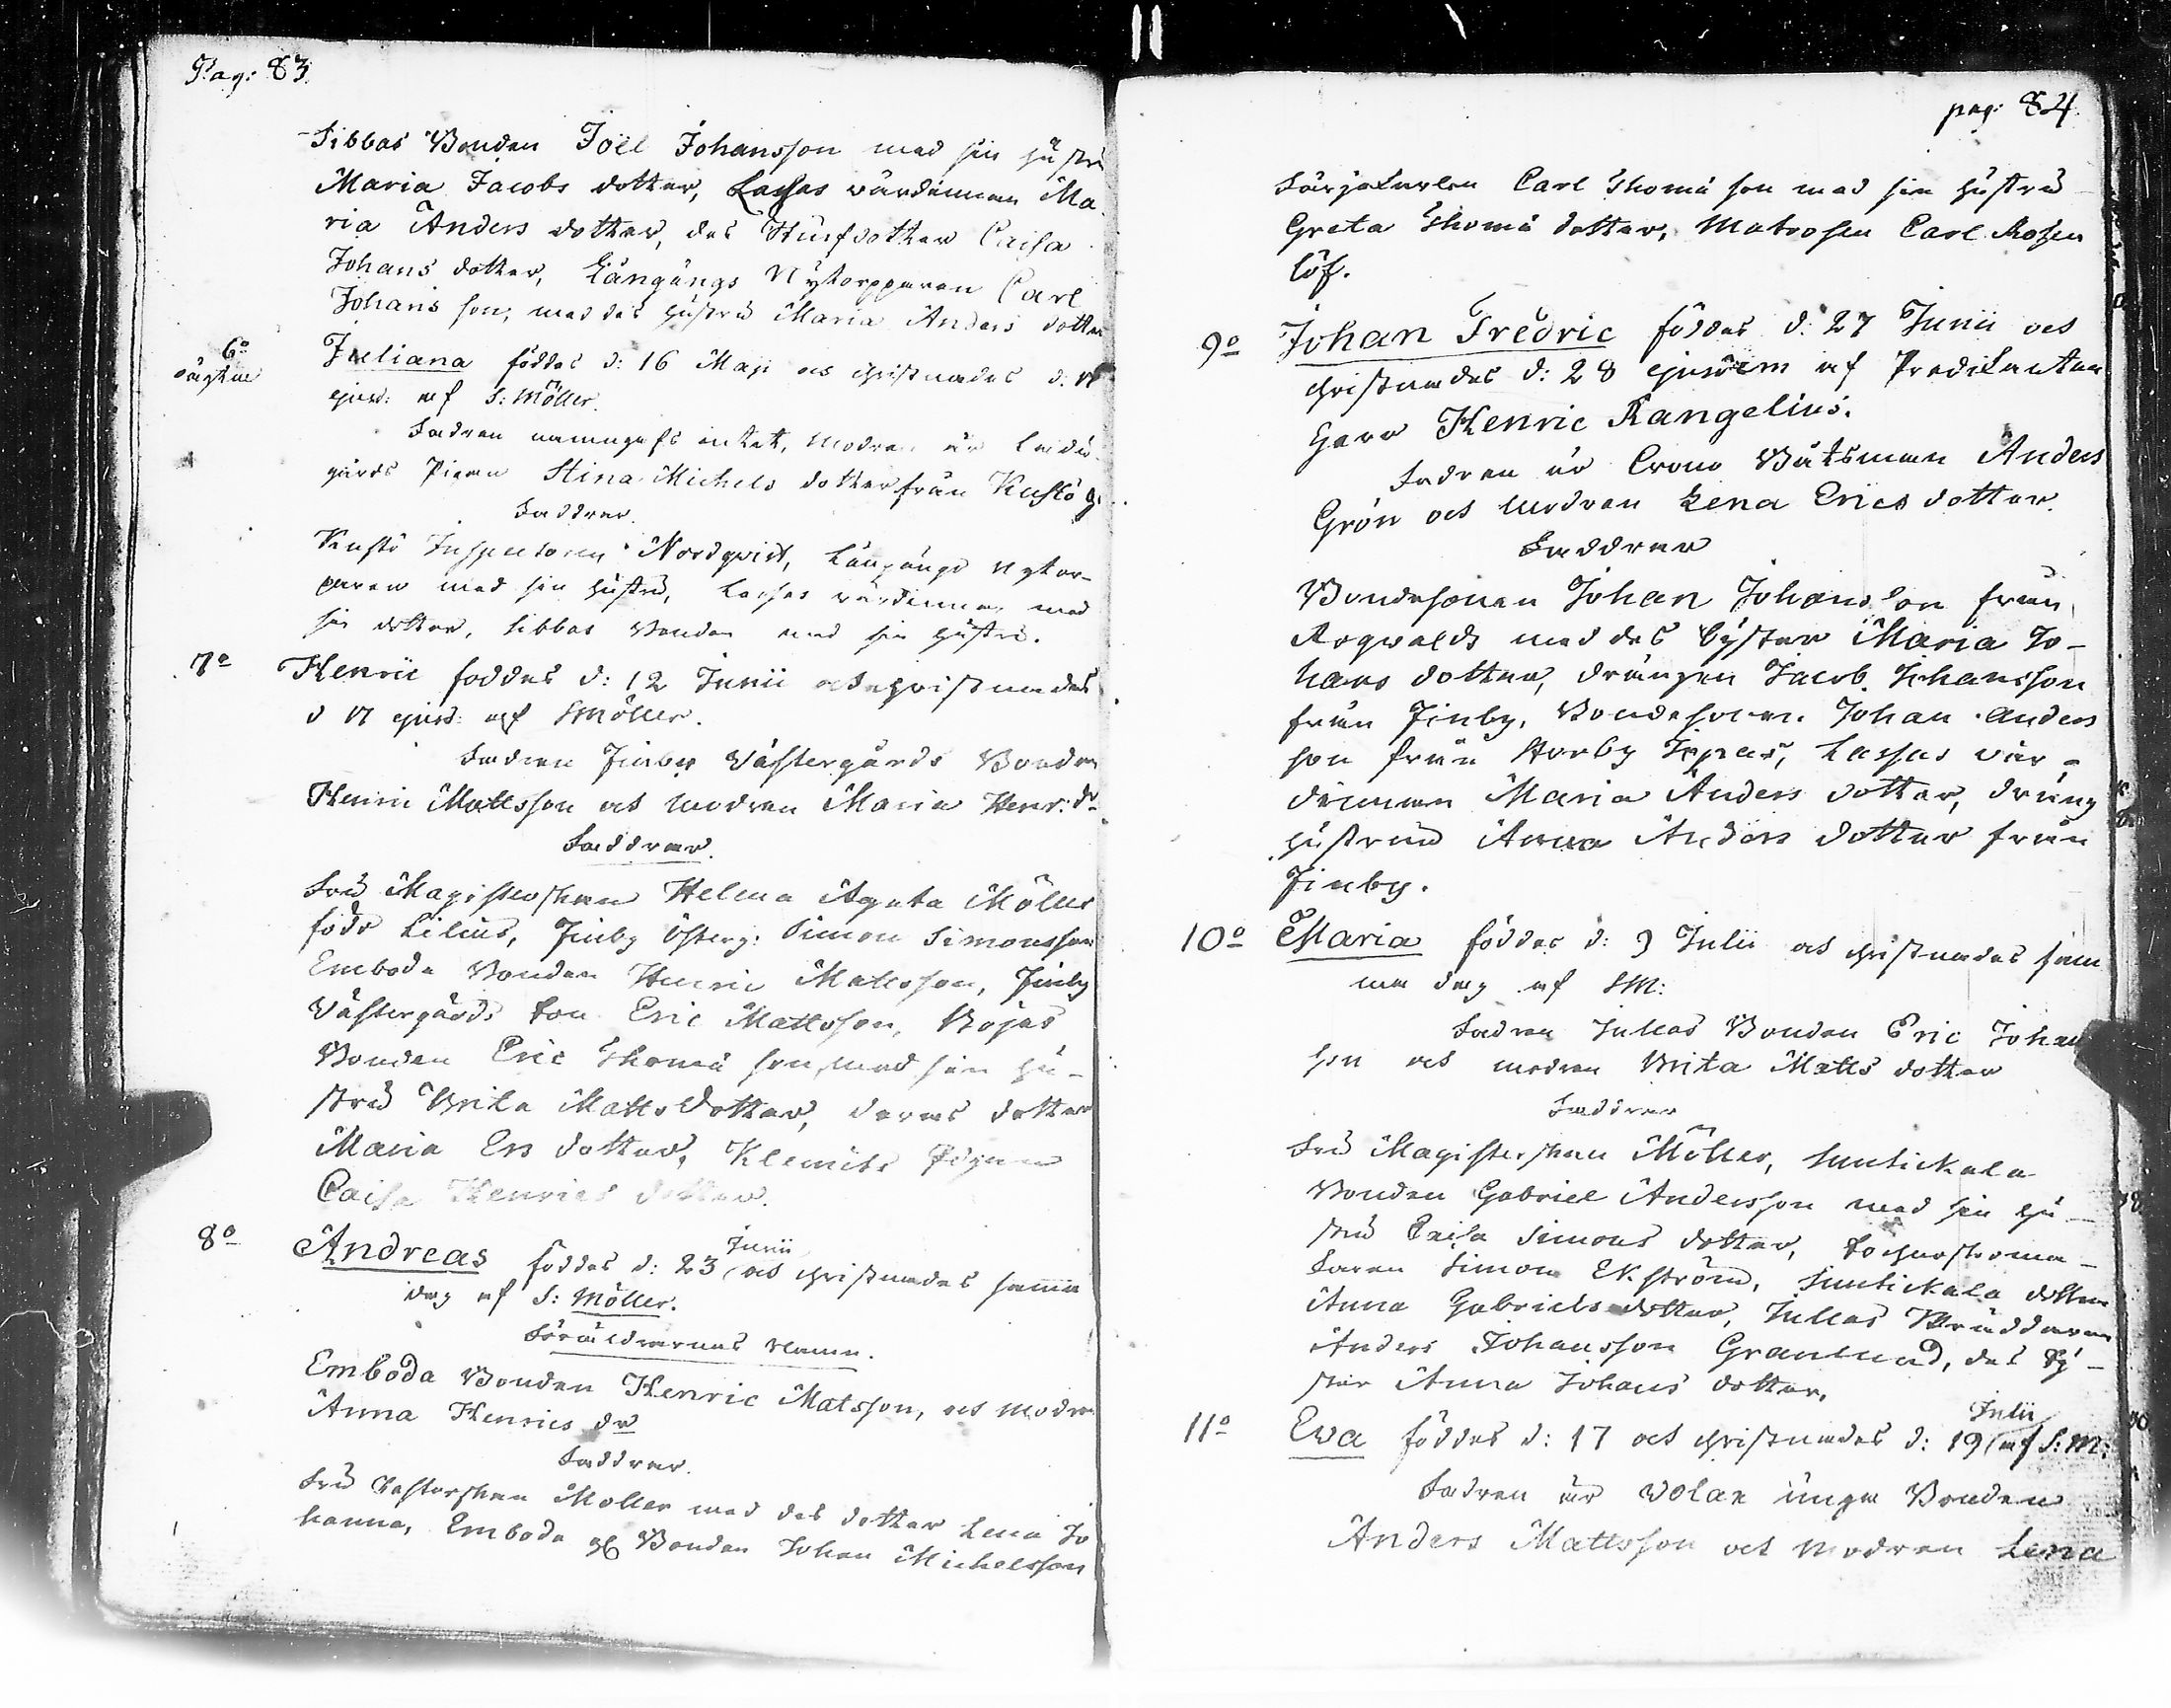 Pag: 83.
Sibbas Bonden Joël Johansson med sin hustru
Maria Jacobs dotter, Lassas värdinnan Ma
ria Anders dotter, des Husf dotter Caisa
Johans dotter, Långängs Nytorpparen Carl
Johans son, med des hustru Maria Anders dotter
6o oägta
Juliana föddes d: 16 Maji och christnades d: 17
ejusd: af S: Möller.
Fadren namngafs intet, Modren är Ladu
gårds Pigan Stina Michels dotter från Kustö g:
Faddrar.
Kustö Inspectoren Nordqvist, Långängs nytor-
paren med sin hustru, Lassas värdinnan med
sin dotter, Sibbas Bonden med sin hustru.
7o Henric foddes d: 12 Junii och christnades
d 17 ejusd: af SMöller.
Fadren Finby Västergårds Bonden
Henric Mattsson och Modren Maria Henr: dr
Faddrar.
Fru Magisterskan Helena Agata Möller
född Lilius, Finby Österg: Simon Simonsson
Emboda Bonden Henric Mattsson, Finby
Västergårds son Eric Mattsson, Böjas
Bonden Eric Thomæ son, med sin hu-
stru Brita Matts Dotter, deras dotter
Maria Ers dotter, Klemets Pigan
Caisa Henrics dotter.
8o Andreas foddes d: 23 Junii och christnades samma
dag af S: Möller.
Föräldrarnas Namn.
Emboda Bonden Henric Matsson, och modren
Anna Henrics dr
Faddrar.
Fru Pastorskan Möller med des dotter Lena Jo
hanna, Emboda Bonden Johan Michelsson
pag: 84.
Färjekarlen Carl Thomæ son med sin hustru
Greta Thomæ dotter, Matrosen Carl Rosen
löf.
9o Johan Fredric föddes d: 27 Junii och
christnades d: 28 ejusdem af Predikanten
Herr Henric Rangelius.
Fadren är Crono Båtsman Anders
Grön och Modren Lena Erics dotter.
Faddrar
Bondesonen Johan Johans son från
Rogvalds med des syster Maria Jo-
hans dotter, drängen Jacob Johansson
från Finby, Bondesonen Johan Anders
son från Storby Jepas, Lassas vär-
dinnan Maria Anders dotter, dräng
hustrun Anna Anders dotter från
Finby.
10o Maria föddes d: 9 Julii och christnades sam
ma dag af SM:
Fadren Jullas Bonden Eric Johan
son och modren Brita Matts dotter
Faddrar
Fru Magisterskan Möller,
Bonden Gabriel Andersson med sin hu-
stru Caisa Simons dotter,
Simon Ekström, dotter
Anna Gabriels dotter, Jullas Skräddaren
Anders Johansson Granlund, des sy-
ster Anna Johans dotter.
11o Ewa föddes d: 17 och christnades d: 19 Julii af S: M:
Fadren är Volax unga Bonden
Anders Mattsson och Modren Lena